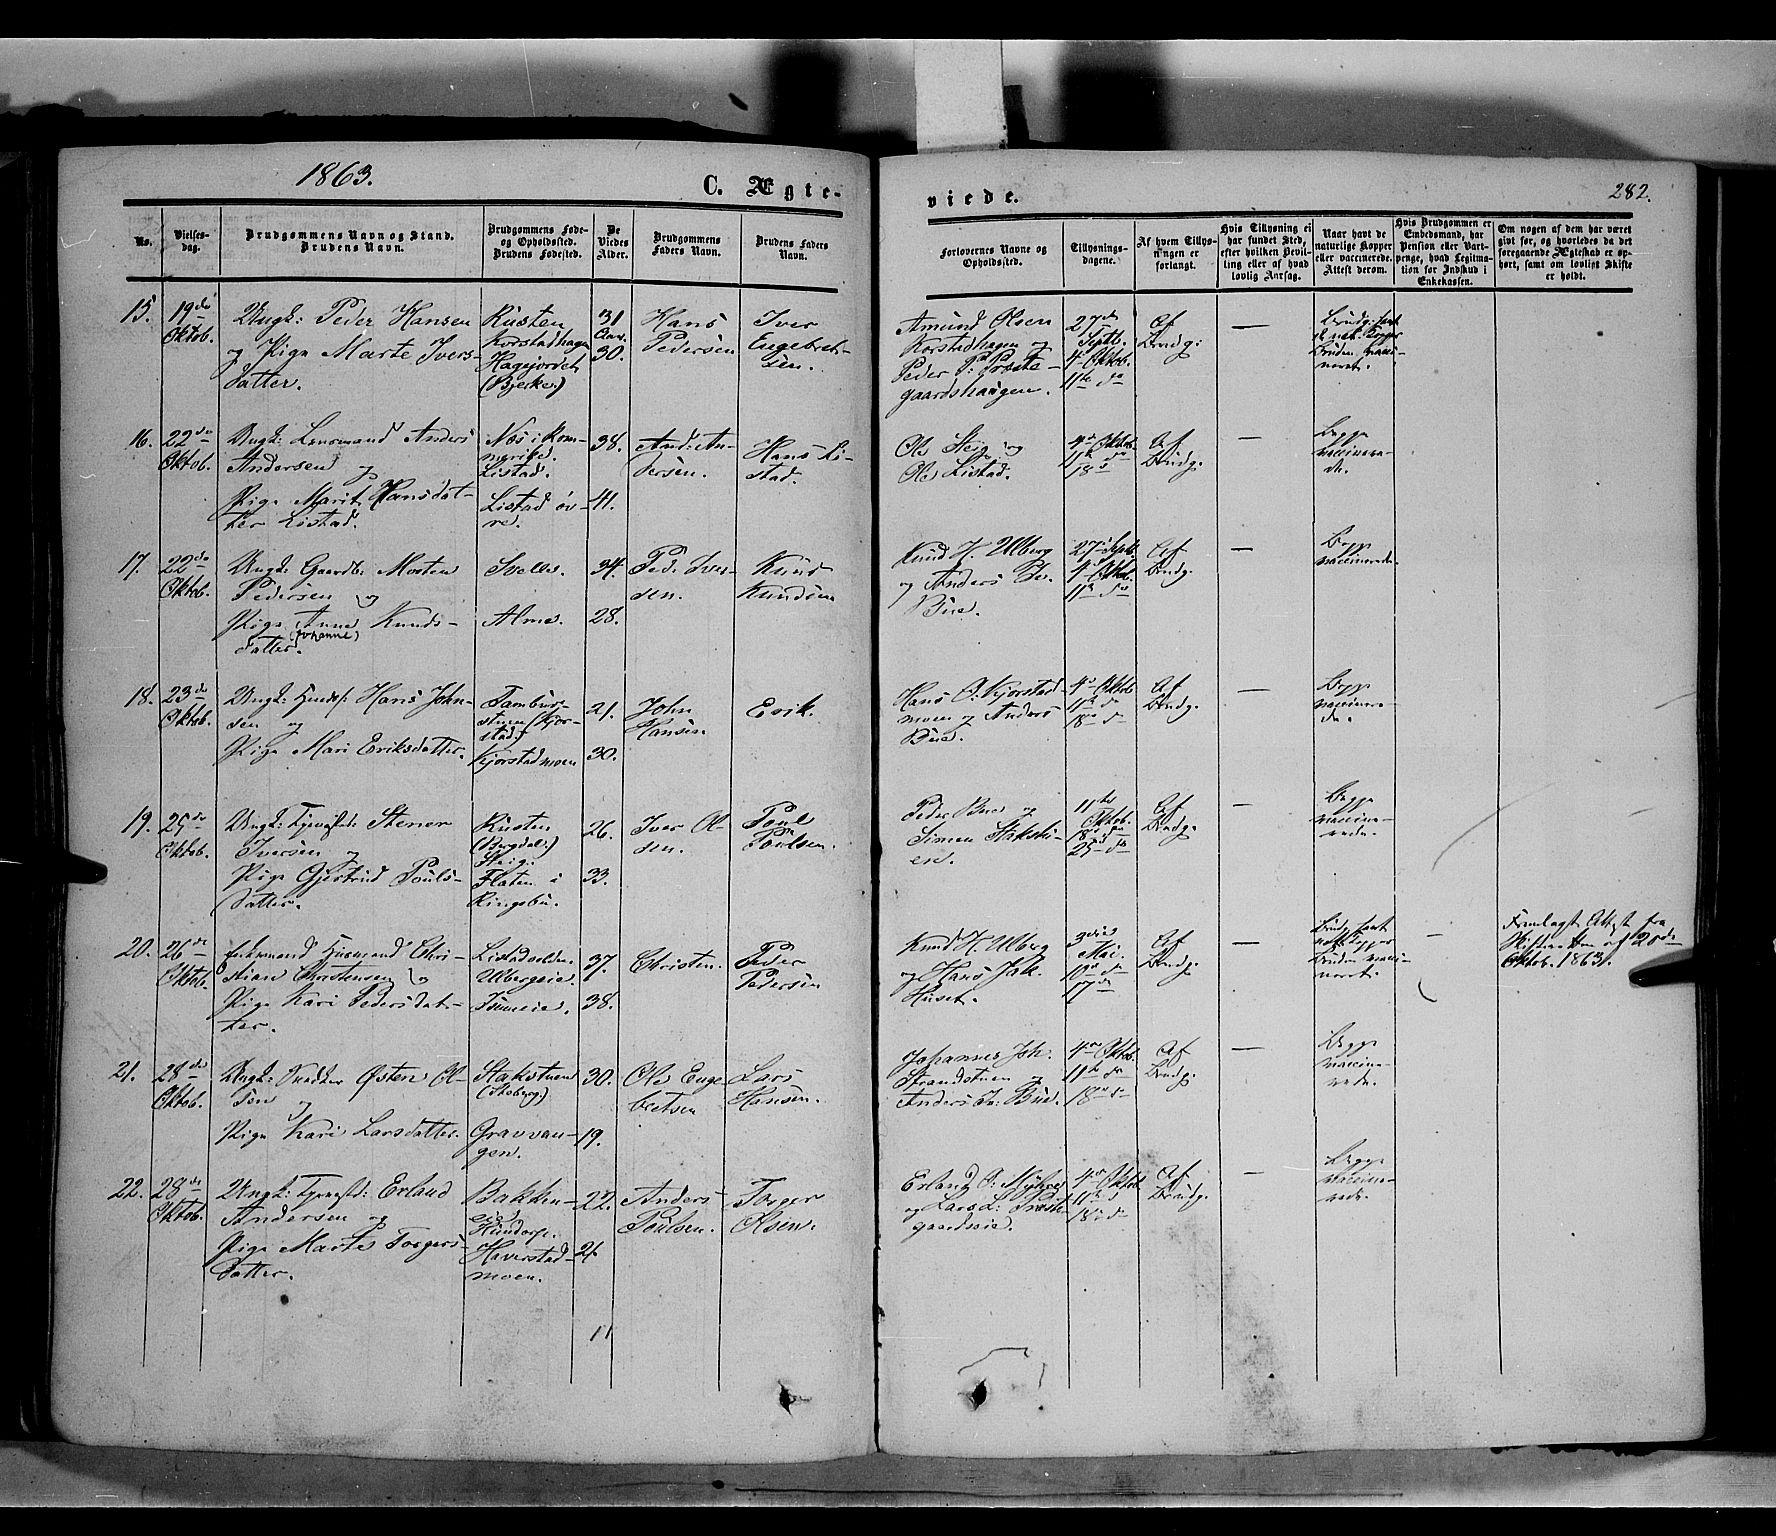 1863.
C. Ægte-
viede.
282.
No.
Vielses-
dag.
Brudgommens Navn og Stand.
Brudens Navn.
Brudgommens Føde-
og Opholdssted.
Brudens Fødested.
De
Viedes
Alder.
Brudgommens
Faders Navn.
Brudens Faders
Navn.
Forlovernes Navne og
Opholdssted.
Tillysnings-
dagene.
Af hvem Tillys-
ningen er
forlangt.
Hvis Tillysning ei
har fundet Sted,
efter hvilken Bevil-
ling eller af hvad
lovlig Aarsag.
Naar havt de
naturlige Kopper
eller vaccinerede.
Attest derom.
Hvis Brudgommen er
Embedsmand, har
Pension eller Vart-
penge, hvad Legitima-
tion for Indskud i
Enkekassen.
Om nogen af dem har været
givt før, og hvorledes da det
foregaaende Ægteskab er op-
hørt, samt om lovligt Skifte
er holdt.
15.
19de
Oktob.
Ungk: Peder Hansen
og Pige Marte Ivers-
datter.
Rusten
Korstadhagen
Hagejordet
(Bjerke.)
31
30.
Hans
Pedersen
Iver
Engebret-
sen.
Amund Olsen
Korstadhagen og
Peder
gaardshaugen.
27de
Septb.
4de Oktob.
11te do
Af
Brudg:
—
16.
22de
Oktob.
Ungk: Lensmand Anders
Andersen og
Pige Marit Hansdat-
ter Listad.
Næs i Rom-
merige.
Listad.
Listad øv-
re.
38.
41.
And: An-
dersen.
Hans Li-
stad.
Ole Steig og
Ole Listad.
4de Oktob.
11te do
18de
Af
Brudg.
—
Begge
vaccinere-
de.
17.
22de
Oktob.
Ungk: Gaardb: Morten
Pedersen og
Pige Anne Knuds-
(Johanne)
datter.
Svelle.
Alme.
34.
28.
Ped. Iver-
sen.
Knud
Knudsen
Knud H. Ulberg
og Anders Pd.
Bue.
27de Septb.
4de Oktob.
11te do
Af
Brudg.
—
Begge
vaccinerede.
18.
23de
Oktob.
Ungk: Hans John-
sen og
Pige Mari Eriksdatter.
Tambur-
stuen (Kjor-
stad.)
Kjorstadmoen
21.
30.
John
Hansen.
Erik.
Hans O. Kjorstad-
moen og Anders
Bue.
4de Oktob
11te do
18de do
Af
Brudg.
—
Begge
vaccinere-
de.
19.
25de
Oktob.
Ungk: Tjenestk: Stener
Iversen og
Pige Gjertrud Pouls-
datter.
Rusten
(Brygdal:)
Steig.
Flaten i
Ringebu.
26.
33.
Iver Ol-
sen.
Poul
Poulsen.
Peder Bue og
Simen Stakstu-
en.
11te
Oktob.
18de do
25de do
Af
Brudg.
—
Begge
vaccine-
rede.
20.
26de
Oktob.
Enkemand Husmand Chri-
stian Christensen og
Pige Kari Pedersdat-
ter.
Ulbergeie.
37.
38.
Christen.
Peder
Pedersen
Knud H. Ulberg
og Hans Joh.
Huset.
3die
Mai.
10de do
17de
Af
Brudg.
—
—
Fremlagt Attest fra
Skifteretten af 25de
Oktob. 1863.
21.
28de
Oktob.
Ungk: Østen Ol-
sen og
Pige Kari Larsdatter.
Stakstuen
Gravvan-
gen.
30.
19.
Ole Enge-
bretsen
Lars
Hansen.
Johannes Joh.
Strandstuen og
Anders Jo: Bue.
4de Oktob.
11te do
18de do
Af
Brudg.
—
Begge
vaccine-
rede.
22.
28de
Oktob.
Ungk: Tjenestk: Erland
Andersen og
Pige Marte Torgers-
datter.
Bakken-
eie
Hundorp.
Haverstad-
moen.
22.
21
Anders
Poulsen.
Torger
Olsen.
Erland O. Myhre
og Lars L: Præste-
gaardseie.
4de Oktob
11te d
18de do
Af
Brudg.
—
Begge
vaccine-
rede.
11